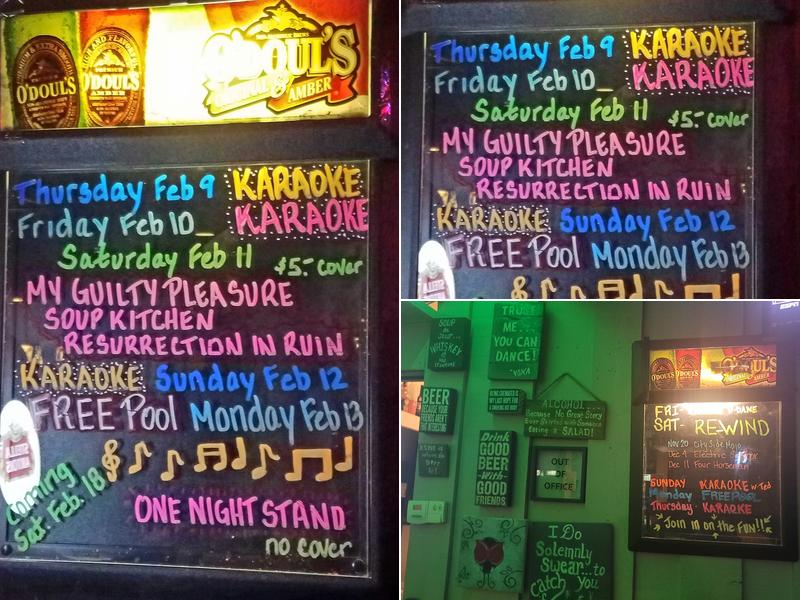 O'DOUL'S
O'DOUL'S
O'DOUL'S
ORIGINAL & AMBER
Thursday Feb 9 KARAOKE
Friday Feb 10_ KARAOKE
Saturday Feb 11 $5.- cover
MY GUILTY PLEASURE
SOUP KITCHEN
RESURRECTION IN RUIN
KARAOKE Sunday Feb 12
FREE Pool Monday Feb 13
Coming
Sat. Feb. 18
ONE NIGHT STAND
no cover
Thursday Feb 9 KARAOKE
Friday Feb 10_ KARAOKE
Saturday Feb 11 $5.- cover
MY GUILTY PLEASURE
SOUP KITCHEN
RESURRECTION IN RUIN
KARAOKE Sunday Feb 12
FREE Pool Monday Feb 13
SOUP
WHISKEY
TRUST
ME...
YOU CAN
DANCE!
BEER
BECAUSE YOUR
FRIENDS AREN'T
THIS INTERESTING
ALCOHOL...
Because No Great Story
Ever Started with Someone
Eating a SALAD!
Drink
GOOD
BEER
-With-
GOOD
FRIENDS
OUT
OF
OFFICE
I Do
Solemnly
Swear...to
Catch You
ESPN
O'DOUL'S
O'DOUL'S
O'DOUL'S
FRI-
SAT- RE-WIND
Nov 20 City Side Mojo
Dec 4 Electric
Dec 11 Four Horsemen
SUNDAY KARAOKE w Ted
Monday FREEPOOL
Thursday - KARAOKE
Join in on the FUN!!